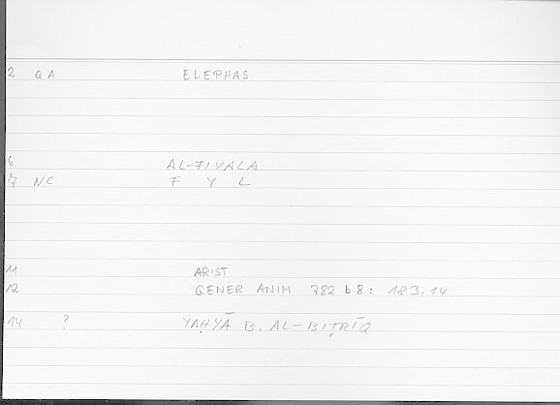 2 QA ELEPHAS
6 AL-FIYALA
7 NC F Y L
11 ARIST
12 GENER ANIM 782 b 8: 183,14
14 ? YAḤYĀ B. AL-BIṬRĪQ